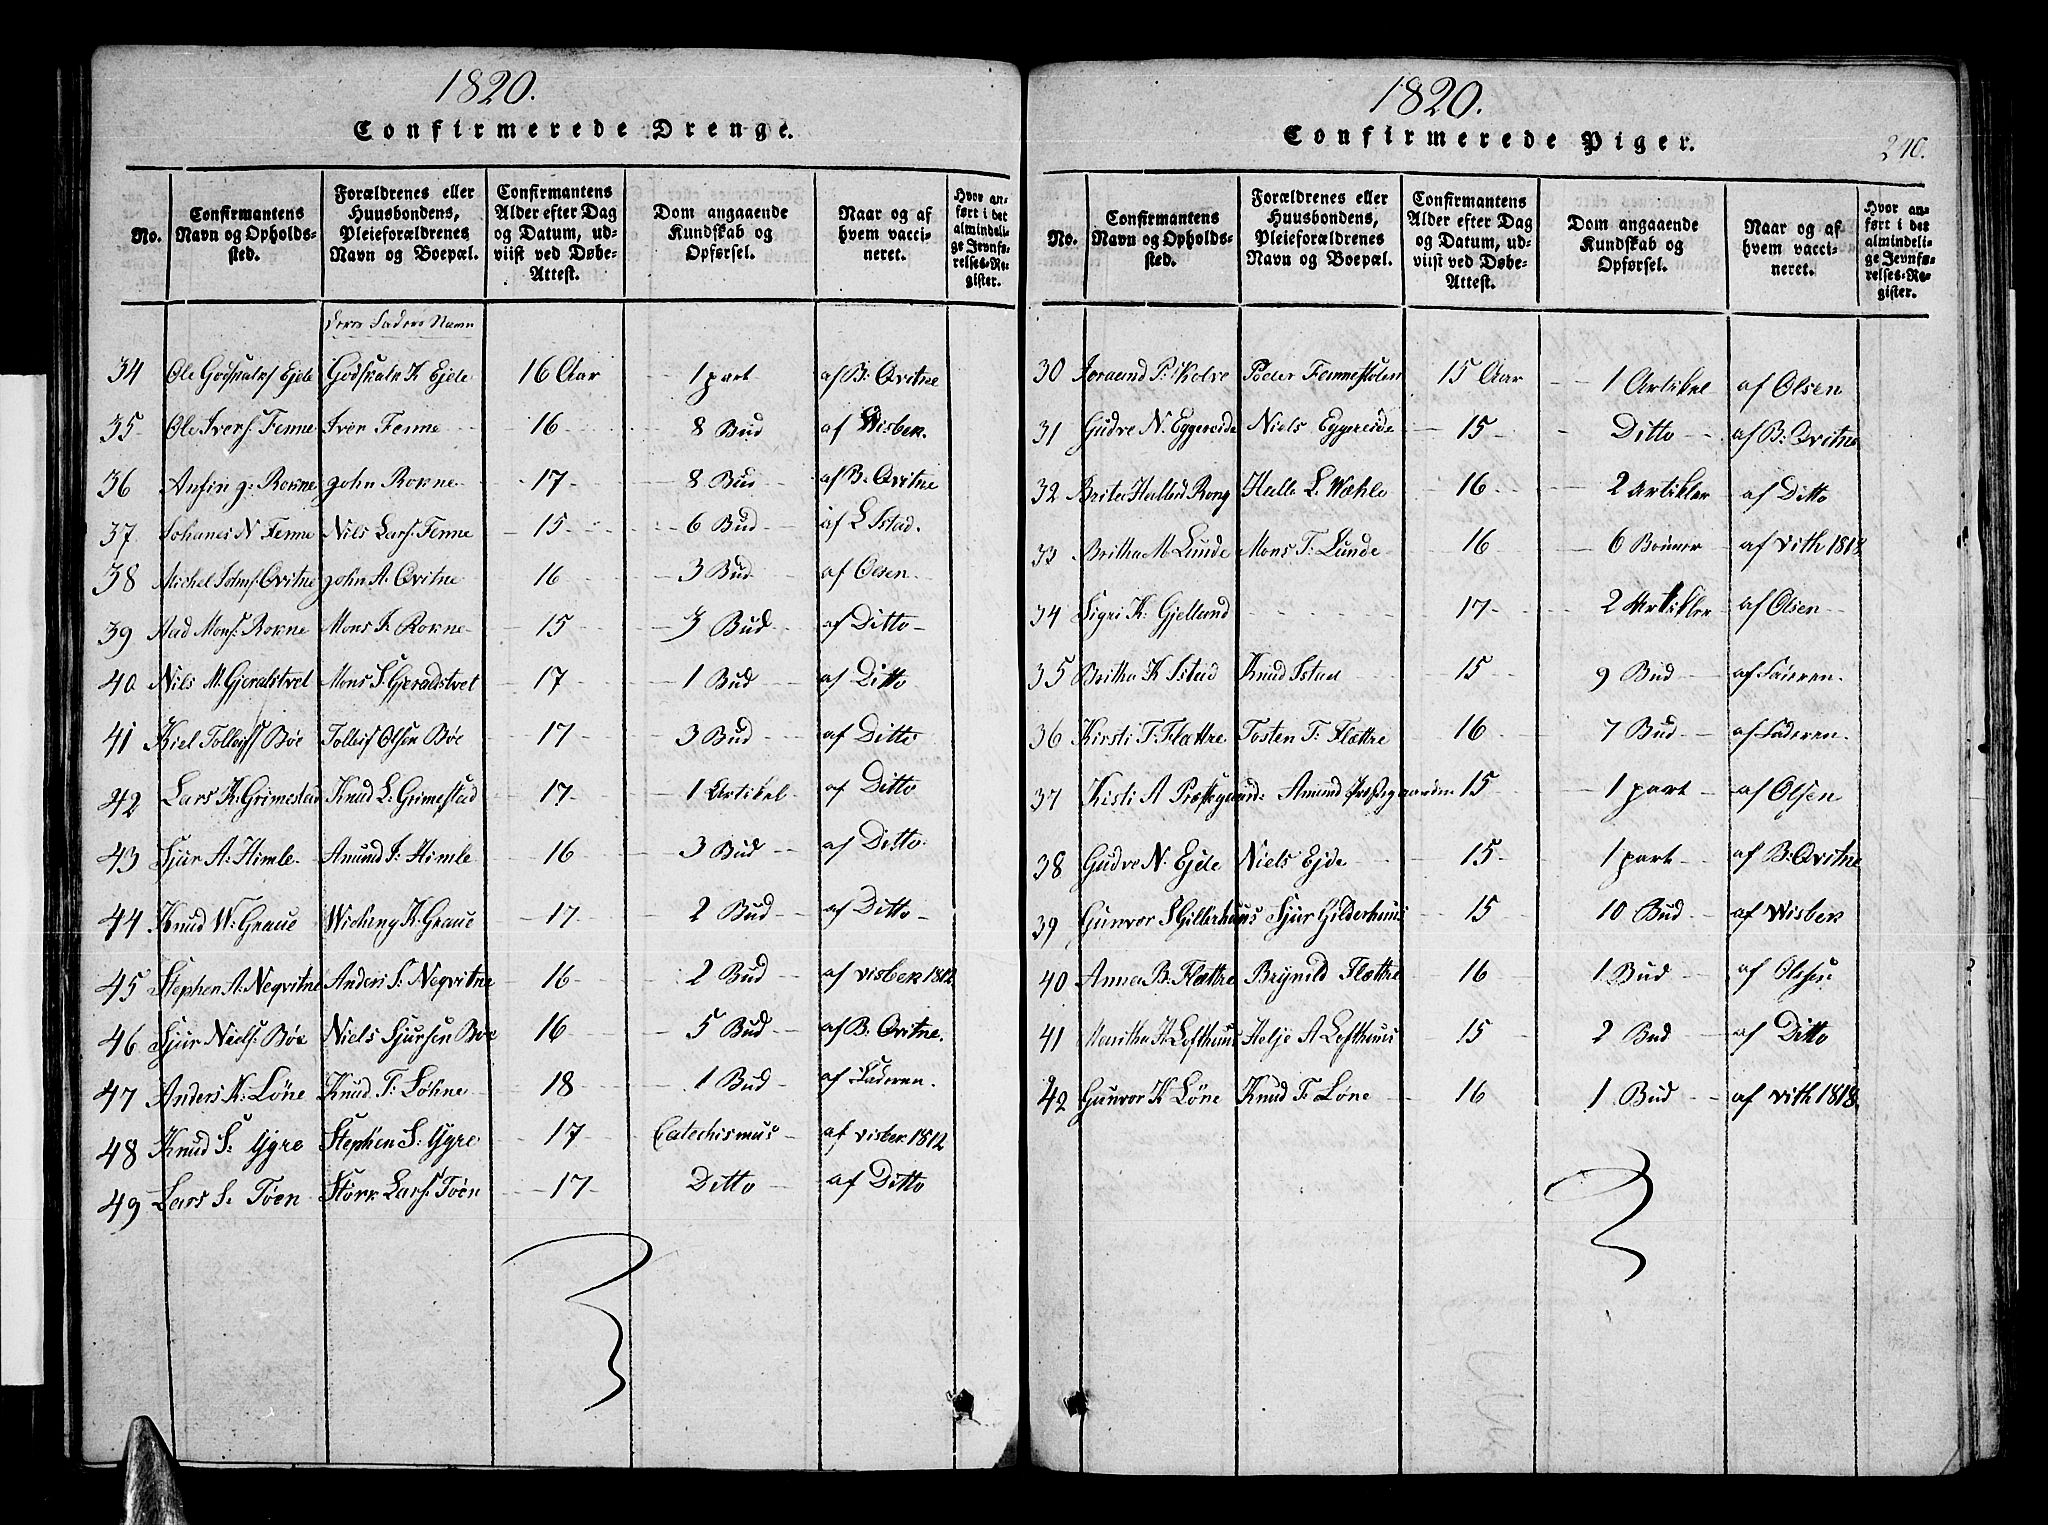 1820.
Confirmerede Drenge.
No.
Confirmantens Navn og Opholds-sted.
Forældrenes eller Huusbondens, Pleieforældrenes Navn og Boepæl.
Confirmantens Alder efter Dag og Datum, ud-viist ved Døbe-Attest.
Dom angaaende Kundskab og Opførsel.
Naar og af hvem vacci-neret.
Hvor an-ført i det almindeli-ge Jevnfø-relses-Re-gister.
deres Faders Navn
34 Ole Godskalks Ejde Godskalk K Ejde 16 Aar 1 part af B: Qvitne
35 Ole Ivers: Fenne Iver Fenne 16 8 Bud af Wisbek.
36 Anfin g: Rokne gohn Rokne 17 8 Bud af B: Qvitne
37 Johanes N Fenne Nils Lars: Fenne 15 6 Bud af L Istad.
38 Michel Johns: Qvitne gohn A. Qvitne 16 3 Bud af Olsen.
39 Aad Mons: Rokne Mons I: Rokne 15 3 Bud af Ditto
40 Nils M. Gjeralstvet Mons S. Gjeraldstvet 17 1 Bud af Ditto
41 Kiel Tolleifs Böe Tolleif Olsen Böe 17 3 Bud af Ditto
42 Lars K. Grimestad Knud L: Grimestad 17 1 Artikel af Ditto
43 Sjur A: Himle Amund S: Himle 16 3 Bud af Ditto
44 Knud W: Graue Wiching K. Graue 17 2 Bud af Ditto
45 Stephen A: Neqvitne Anders S: Neqvitne 16 2 Bud af visbek 1812
46 Sjur Niels: Böe Niels Sjursen Böe 16 5 Bud af B: Qvitne.
47 Anders K: Löne Knud T: Löhne 18 1 Bud af Faderen.
48 Knud S: Ygre Stephen S: Ygre 17 Catechismus af visbek 1812
49 Lars S. Töen Störk Lars: Töen 17 Ditto af Ditto
1820.
Confirmerede Piger.
240.
No.
Confirmantens Navn og Opholds-sted.
Forældrenes eller Huusbondens, Pleieforældrenes Navn og Boepæl.
Confirmantens Alder efter Dag og Datum, ud-viist ved Døbe-Attest.
Dom angaaende Kundskab og Opførsel.
Naar og af hvem vacci-neret.
Hvor an-ført i det almindeli-ge Jevnfø-relses-Re-gister.
30 P: Skolve Peder Femmestölen 15 Aar 1 Artikel af Olsen
31 Gudve N. Eggereide Niels Eggereide 15 Ditto af B: Qvitne
32 Brita Rong Halle L. Wæhle 16 2 Artikler af Ditto
33 Britha M. Lunde Mons T: Lunde 16 6 Bönner af vith 1818
34 Sigri K. Gjelland 17 2 Artikler af Olsen
35 Britha K Istad Knud Istad 15 9 Bud af Faderen.
36 Kirsti T. Flættre Tosten T: Flættre 16 7 Bud af Faderen.
37 Kisti A Præstgaard: Amund Præstegaarden 15 1 part af Olsen
38 Gudve N: Ejde Niels Ejde 15 1 part af B: Qvitne
39 Gunvor S Gilderhuus Sjur Gilderhuus 15 10 Bud af Wisbek
40 Anna B: Flættre Brynild Flættre 16 1 Bud af Olsen
41 Maritha H Lofthuus Helje A Lofthuus 15 2 Bud af Ditto
42 Gunvor K Löne Knud T: Löne 16 1 Bud af vith 1818.